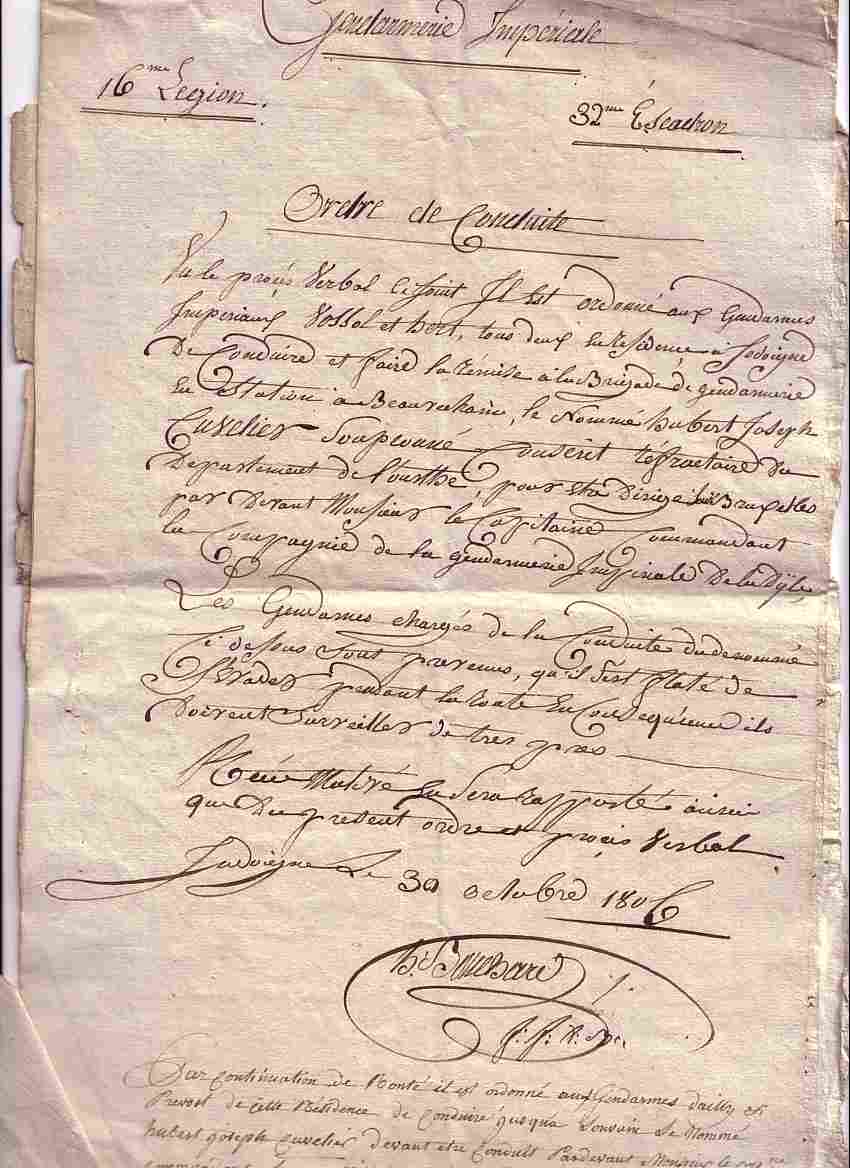 Gendarmerie Impériale
16me Légion.
32me Escadron
Ordre de Conduite
Vu le procés Verbal Ci joint Il Est ordonné aux Gendarmes
Imperiaux Vossol et hert, tous deux En Residence à Jodoigne
De Conduire et faire la rémise à la Brigade de gendarmerie
En Station à Beauvechain, le Nommé hubert Joseph
Cuvelier Soupconné Conscrit réfractaire du
Departement de l'ourthe, pour etre Dirigé sur Bruxelles
par Devant Monsieur le Capitaine Commandant
la Compagnie de la gendarmerie Impériale De la Dyle,
Les Gendarmes chargés de la Conduite du denommé
Ci dessus Sont prevenus, qu'il S'est flaté de
S'Evader pendant la route En Consequence ils
Doivent Surveiller de tres pres
Récé Motivé En Sera rapporté ainsi
que Du present ordre et procés Verbal
Jodoigne Le 30 octobre 1806
h: Bouchard
Par continuation de Routé il est ordonné aux Gendarmes dailly et
Prevost de cette Résidence de Conduire jusqua Louvain Le Nommé
hubert Joseph Cuvelier devant etre Conduit Pardevant Monsieur le